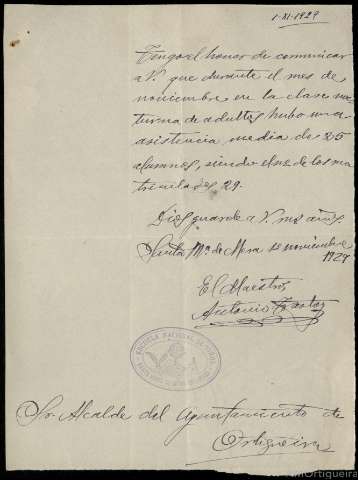 1-XI-1929
Tengo el honor de comunicar
a V. que durante el mes de
noviembre en la clase noc
turna de adultos hubo una
asistencia media de 25
alumnos, siendo el nº de los ma
triculados 29.
Dios guarde a V. ms años.
Santa Mª de Mera 1º noviembre
1929
El Maestro
Antonio
ESCUELA NACIONAL DE
Sr Alcalde del Ayuntamiento de
Ortigueira